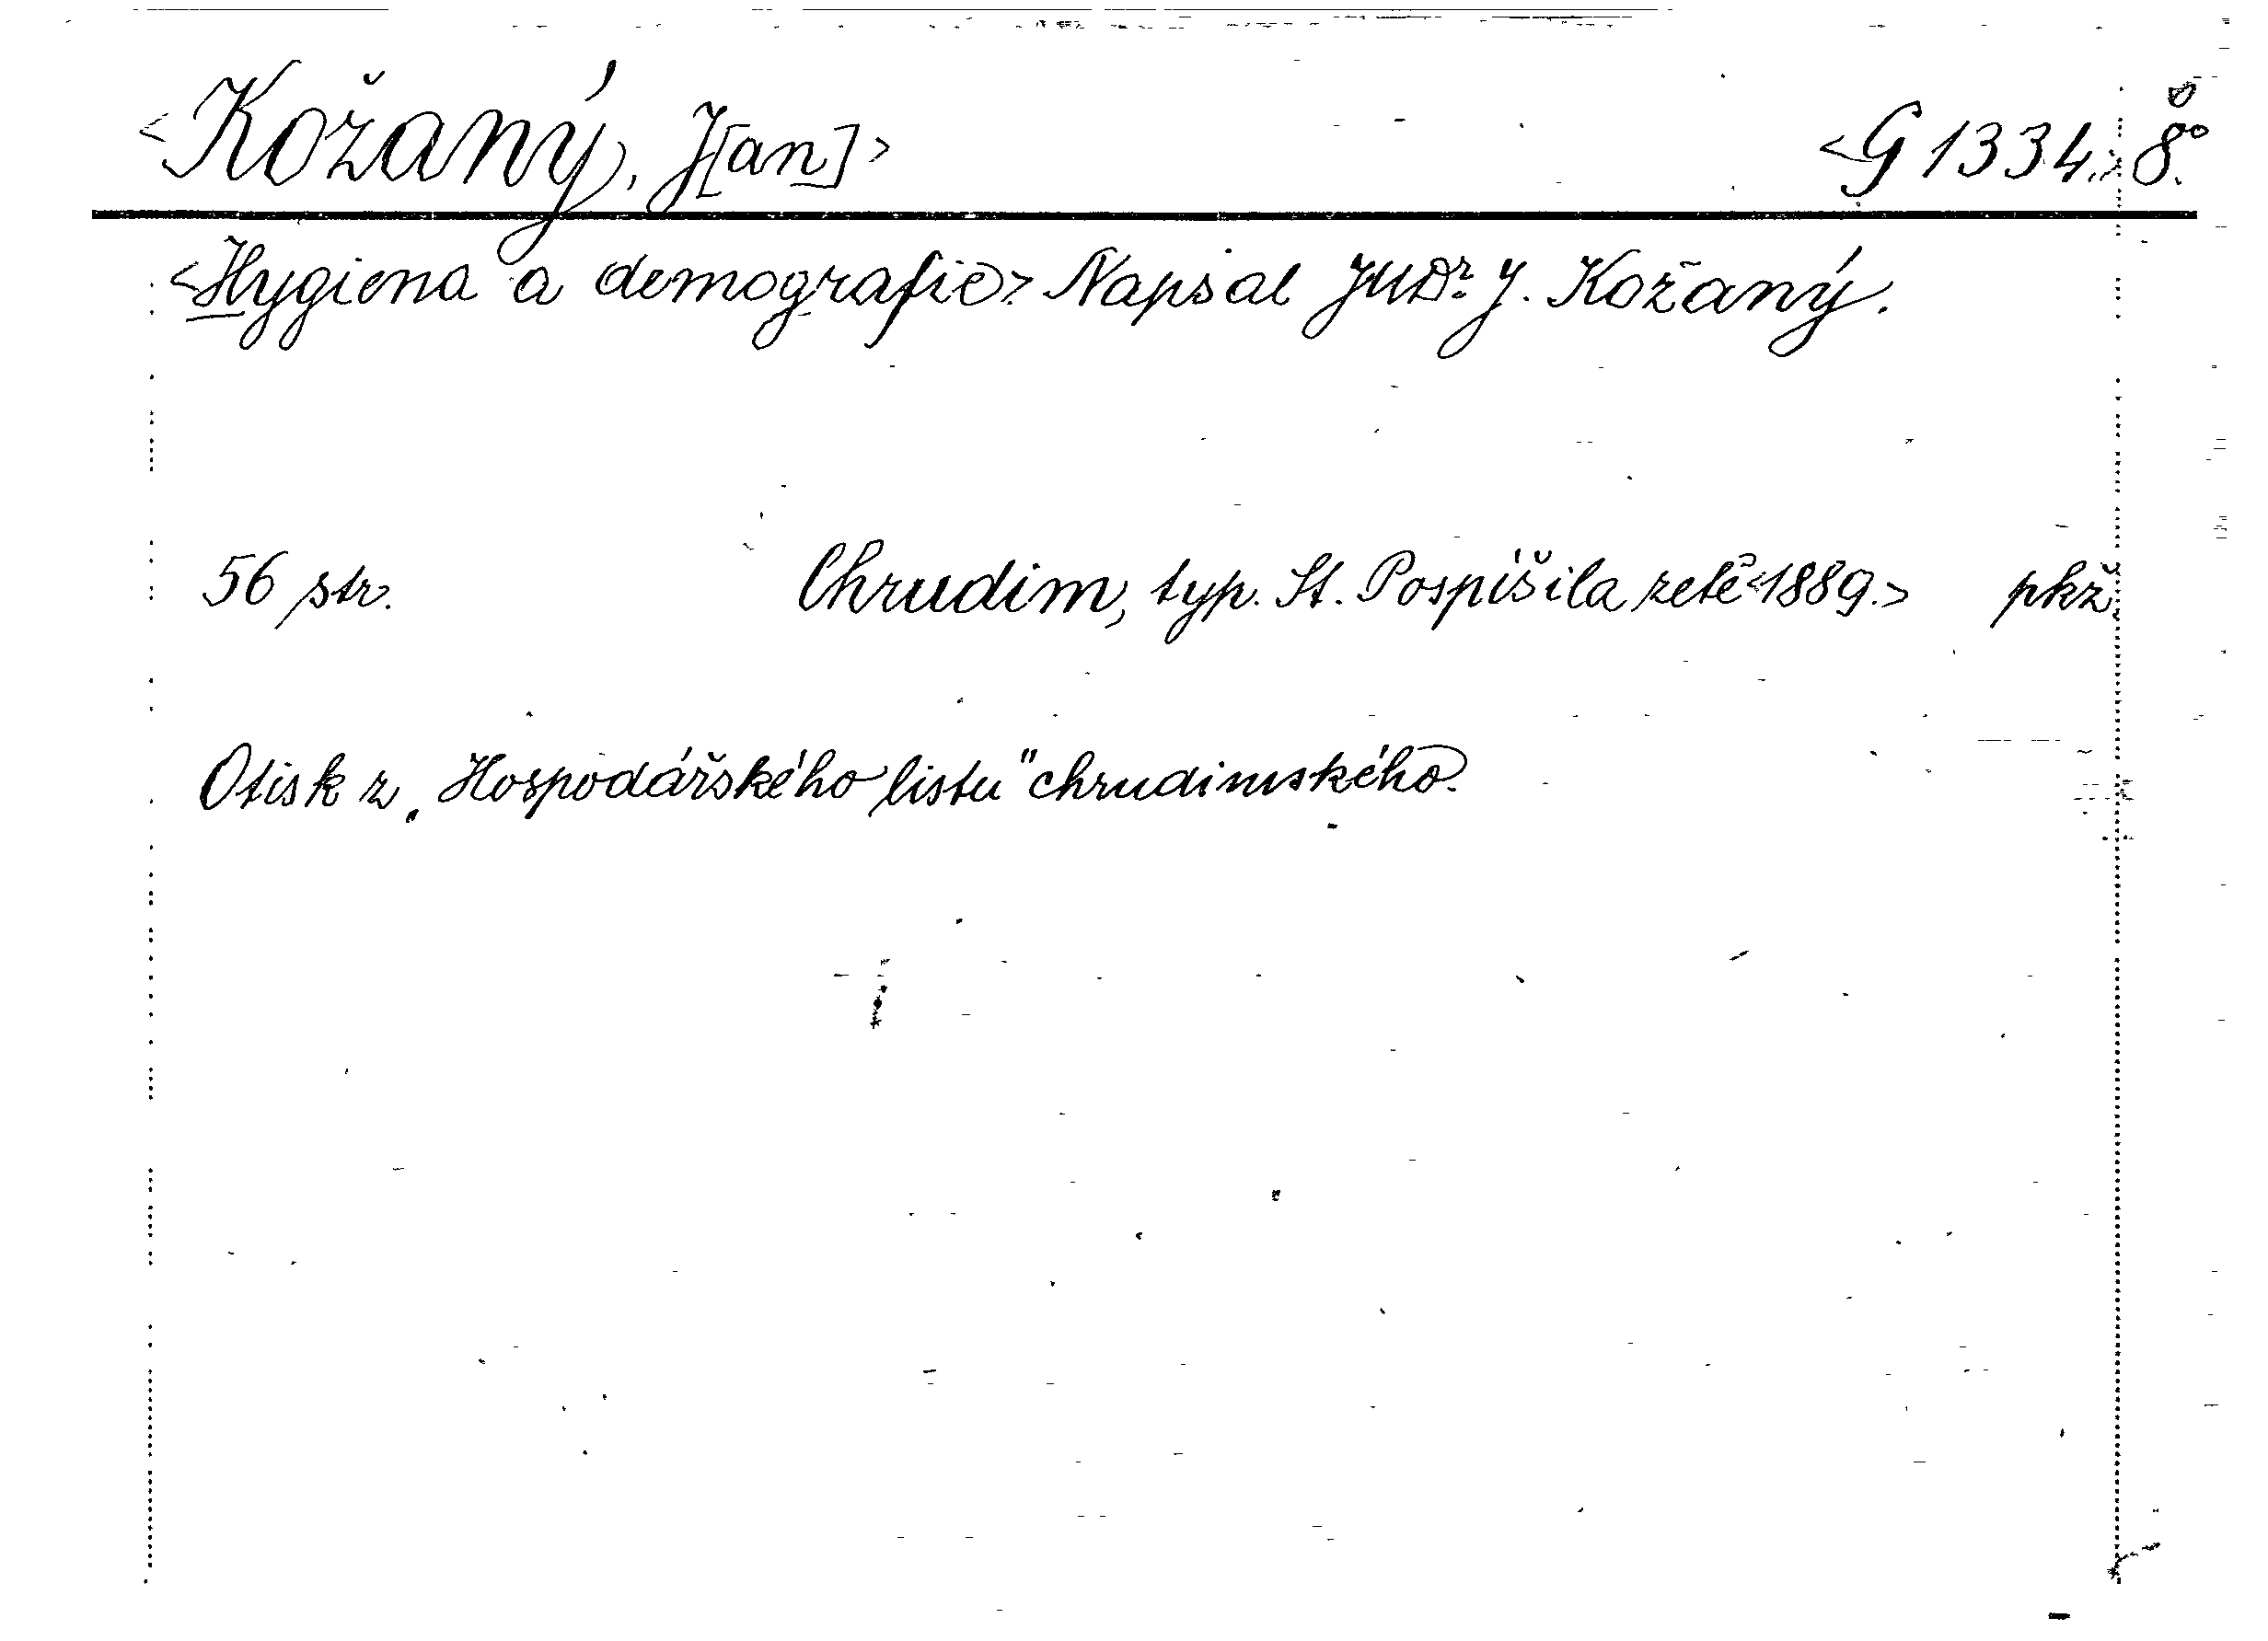 <Kožaný, J[an]> <G 1334.> 8°.
<Hygiena a demografie> Napsal JUDr. J. Kožaný.
56 str. Chrudim, typ. St. Pospíšila zetě <1889.> pkž.
Otisk z „Hospodářského listu" chrudimského.